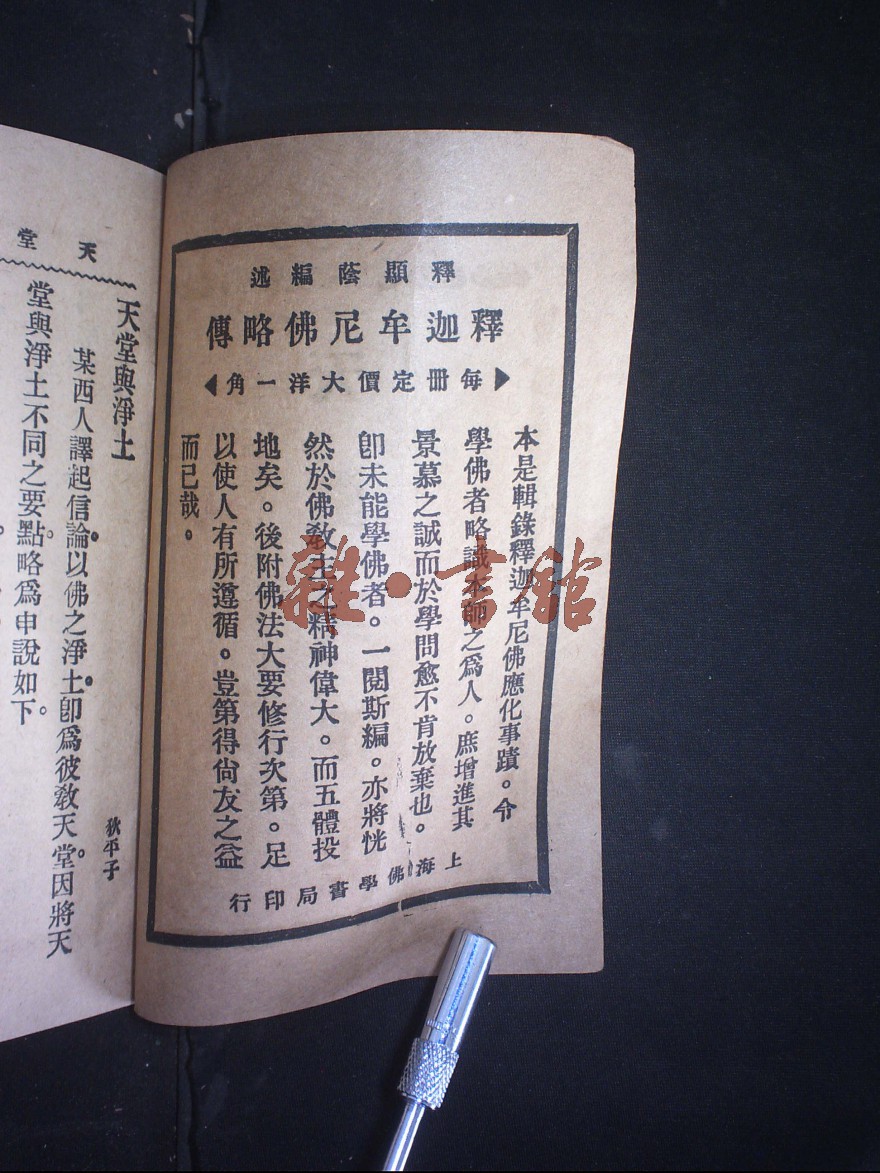 釋顯蔭編述
釋迦牟尼佛略傳
每冊定價大洋一角
本是輯錄釋迦牟尼佛應化事蹟。令
學佛者略識本師之爲人。庶增進其
景慕之誠而於學問愈不肯放棄也。
卽未能學佛者。一閱斯編。亦將恍
然於佛敎主之精神偉大。而五體投
地矣。後附佛法大要修行次第。足
以使人有所遵循。豈第得尙友之益
而已哉。
上海佛學書局印行
天堂
天堂與淨土
狄平子
某西人譯起信論。以佛之淨土。卽爲彼敎天堂。因將天
堂與淨土不同之要點。略爲申說如下。
雜·書館